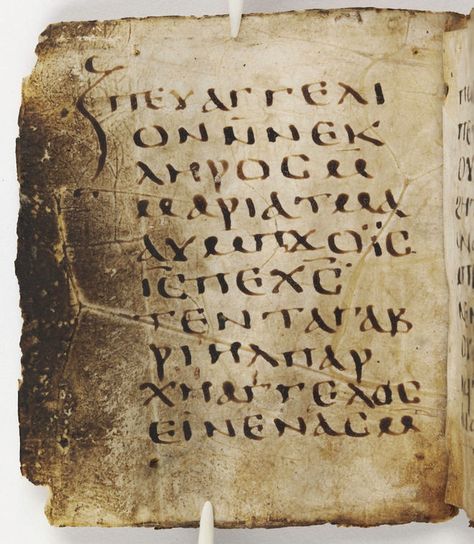 ⲡⲉⲩⲁⲅⲅⲉⲗⲓ
ⲟⲛⲛ̄ⲛⲉⲕ
ⲗⲏⲣⲟⲥⲙ̄
ⲙⲁⲣⲓⲁⲧⲙⲁ
ⲁⲩⲙⲡϫⲟⲓ̈ⲥ
ⲓ̅ⲥ̅ⲡⲉⲭ̅ⲥ̅
ⲧⲉⲛⲧⲁⲅⲁⲃ
ⲣⲓⲏⲗⲡⲁⲣ
ⲭⲏⲁⲅⲅⲉⲗⲟⲥ
ⲉⲓⲛⲉⲛⲁⲥⲙ